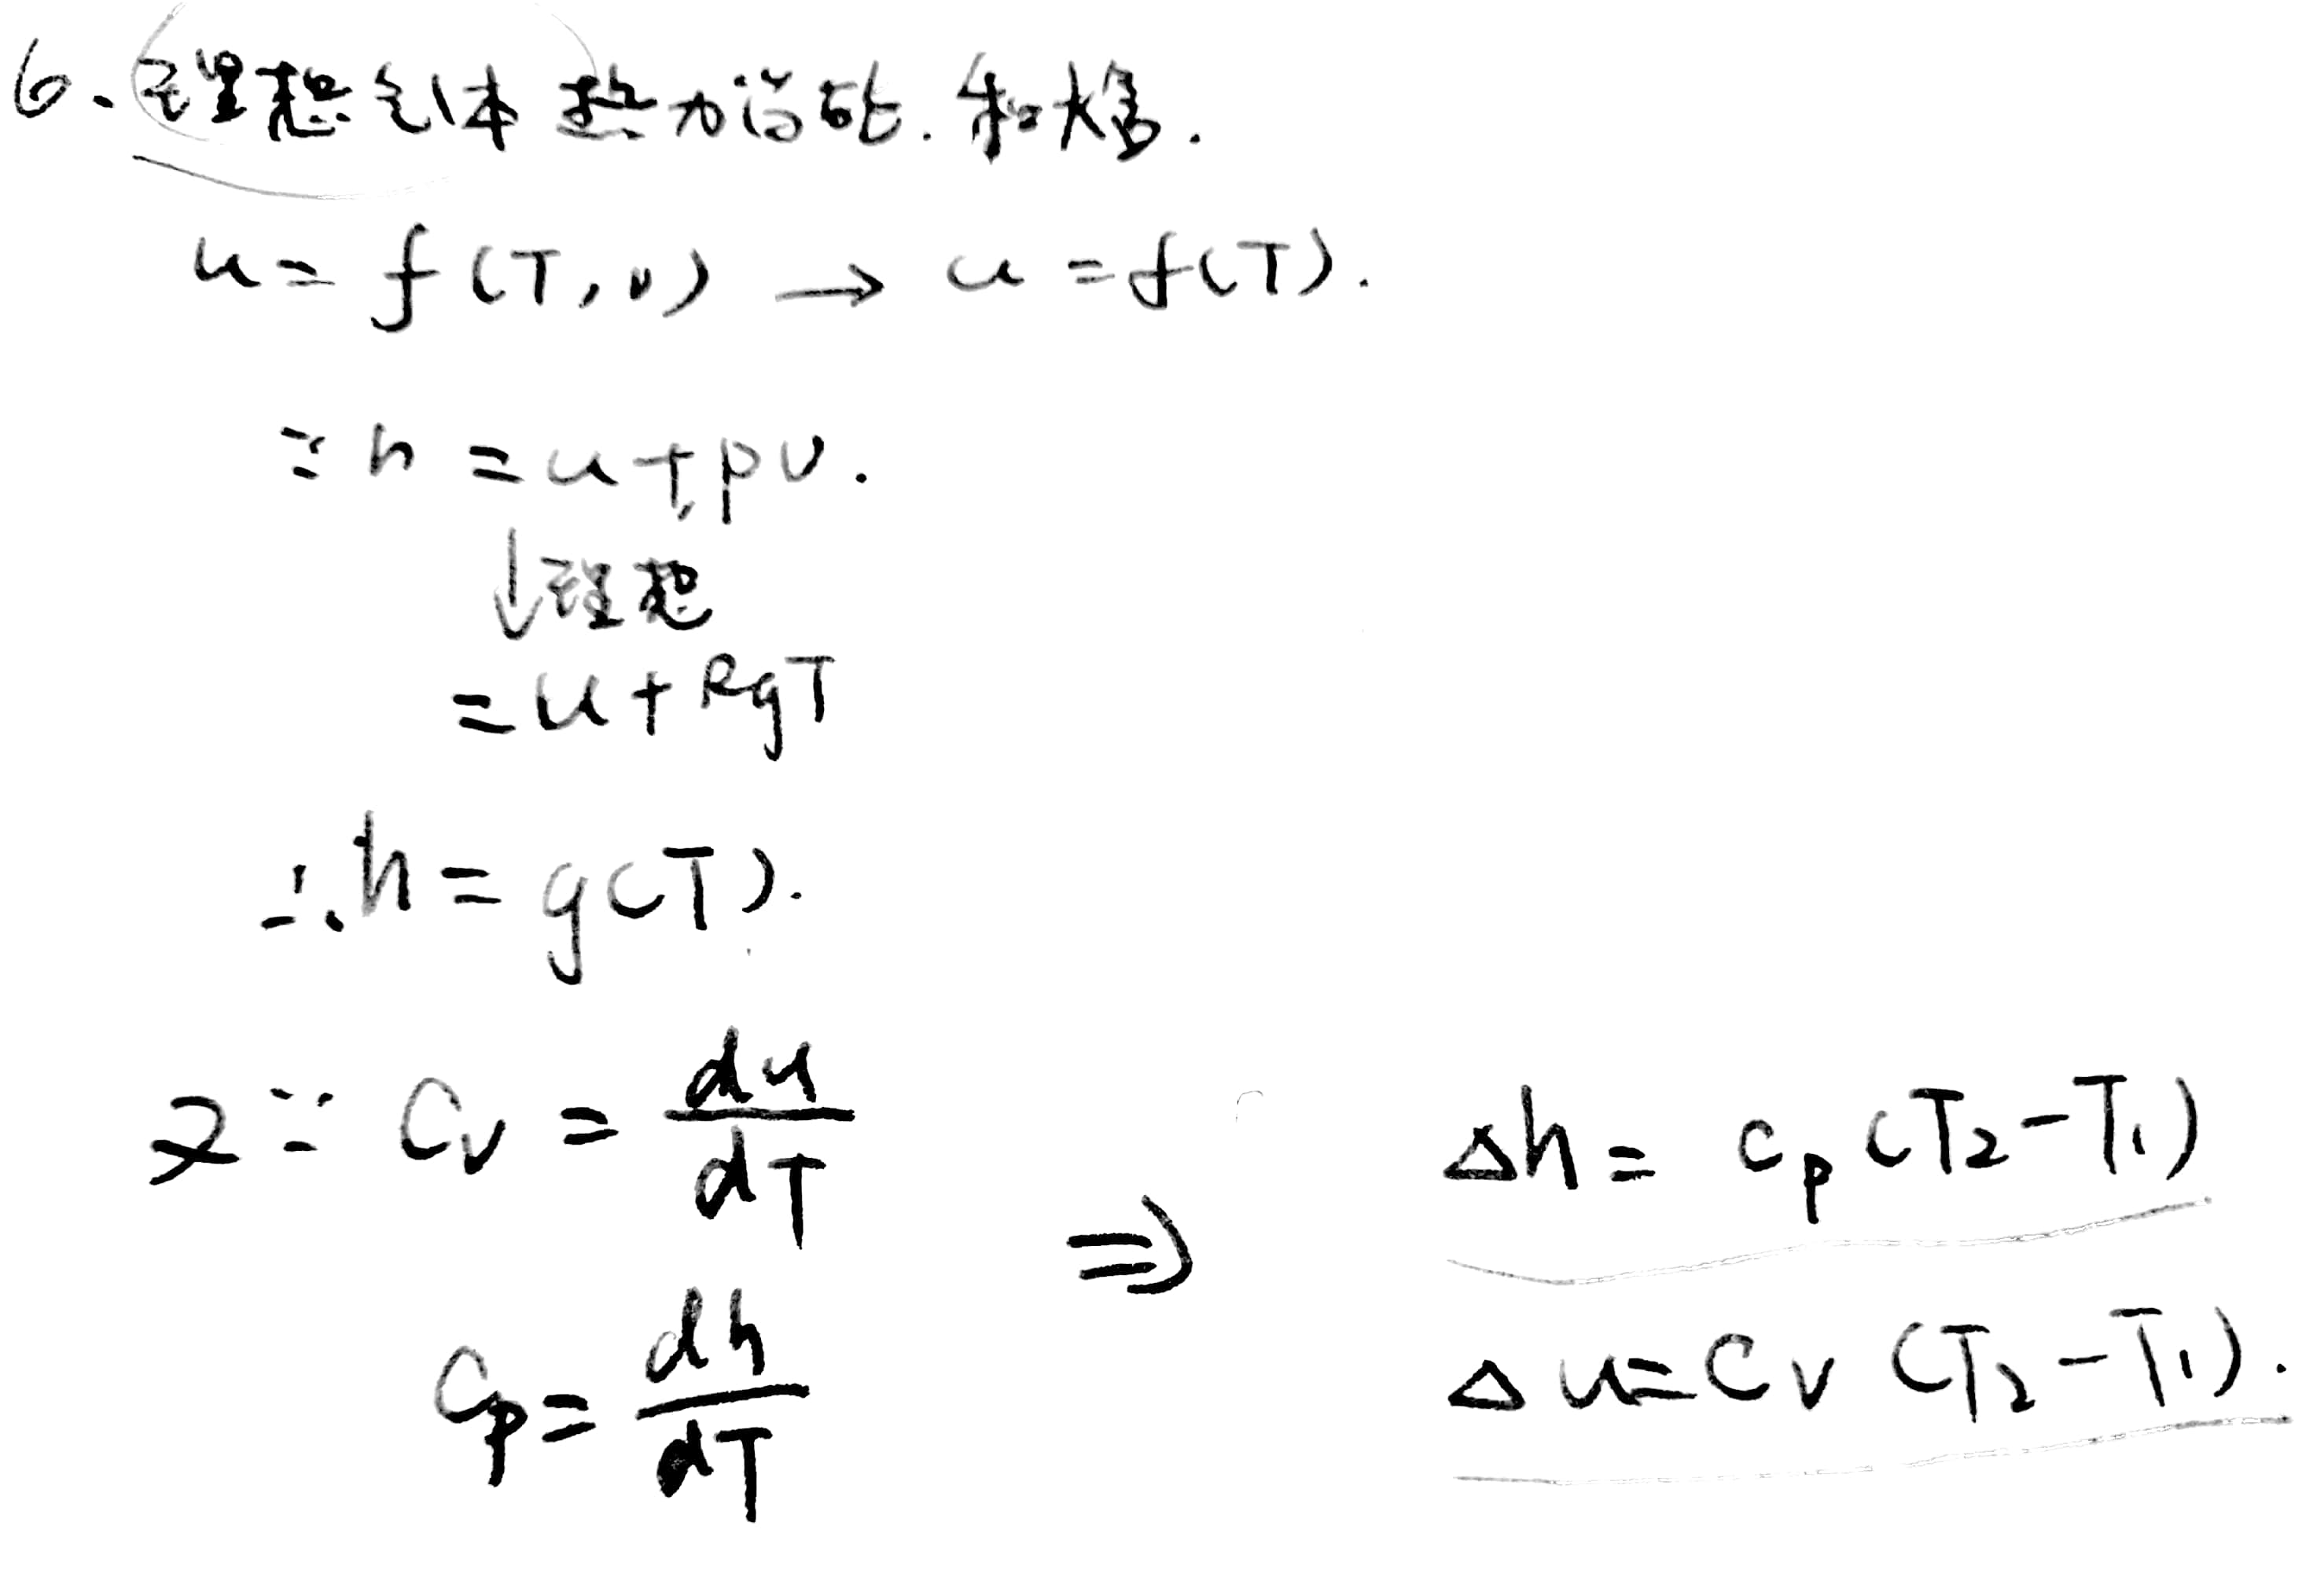 6、理想气体热力学能.和焓.
u = f(T,v) → u = f(T).
∵ h = u + pv.
↓理想
= u + RgT
∴ h = g(T).
又∵ Cv = du/dT
⇒
Cp = dh/dT
Δh = cp(T2-T1)
Δu = Cv(T2-T1).